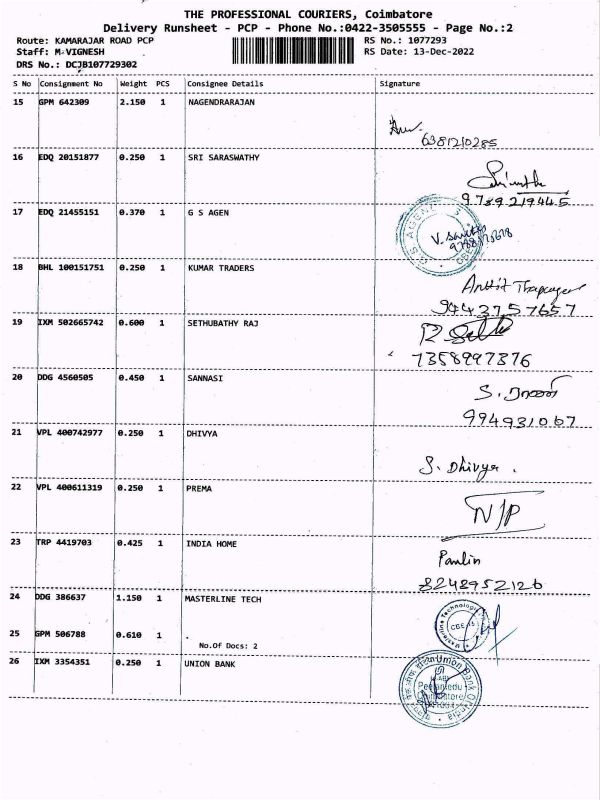 THE PROFESSIONAL COURIERS, Coimbatore
Delivery Runsheet - PCP - Phone No.:0422-3505555 - Page No.:2
Route: KAMARAJAR ROAD PCP RS No.: 1077293
Staff: M VIGNESH RS Date: 13-Dec-2022
DRS No.: DCJB107729302
S No Consignment No Weight PCS Consignee Details Signature
15 GPM 642309 2.150 1 NAGENDRARAJAN
6381210285
16 EDQ 20151877 0.250 1 SRI SARASWATHY
9789219445
17 EDQ 21455151 0.370 1 G S AGEN
G.S. AGEN
18 BHL 100151751 0.250 1 KUMAR TRADERS
9443757657
19 IXM 502665742 0.600 1 SETHUBATHY RAJ
7358997376
20 DDG 4560505 0.450 1 SANNASI
994931067
21 VPL 400742977 0.250 1 DHIVYA
S. Dhivya .
22 VPL 400611319 0.250 1 PREMA
N/P
23 TRP 4419703 0.425 1 INDIA HOME
Paulin
8248952126
24 DDG 386637 1.150 1 MASTERLINE TECH
Masterline Technologies
CBE-15
25 GPM 506788 0.610 1
No.Of Docs: 2
26 IXM 3354351 0.250 1 UNION BANK
Union Bank Of India
Peelamedu
Coimbatore